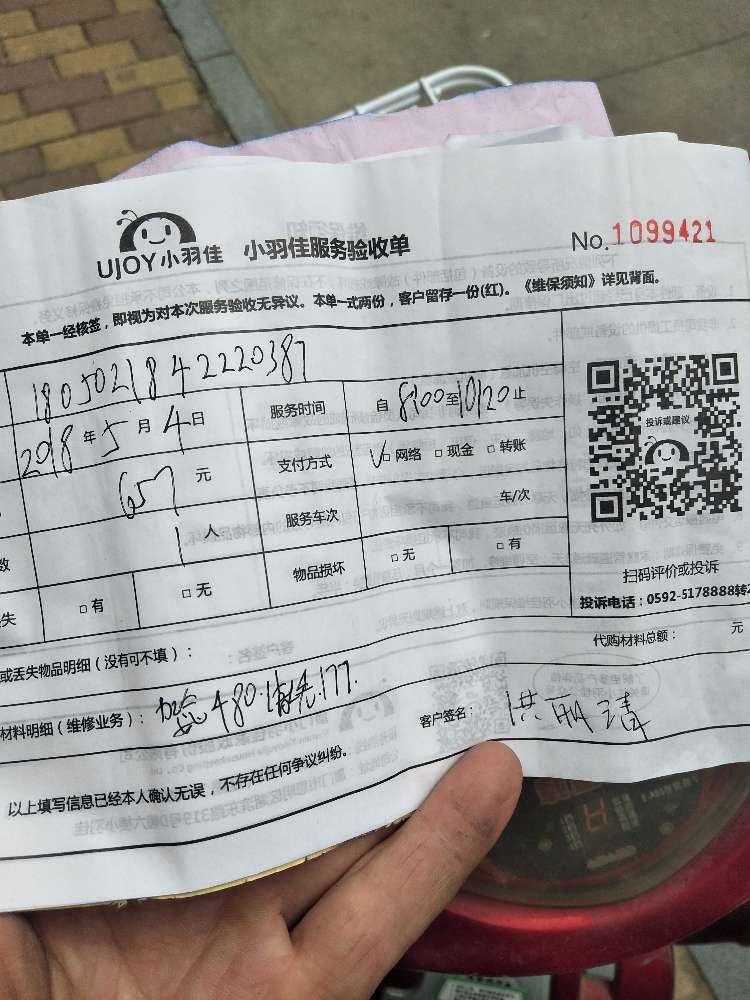 UJOY小羽佳 小羽佳服务验收单 No.1099421
本单一经核签，即视为对本次服务验收无异议。本单一式两份，客户留存一份(红)。《维保须知》详见背面。
180502184222038
2018年5月4日 服务时间 自8:00至10:20止
657元 支付方式 √□网络 □现金 □转账
数 1人 服务车次 车/次
失 □有 □无 物品损坏 □无 □有
投诉或建议
扫码评价或投诉
投诉电话：0592-5178888转2
或丢失物品明细（没有可不填）： 代购材料总额： 元
材料明细（维修业务）： 480. 177. 客户签名： 洪丽清
以上填写信息已经本人确认无误，不存在任何争议纠纷。